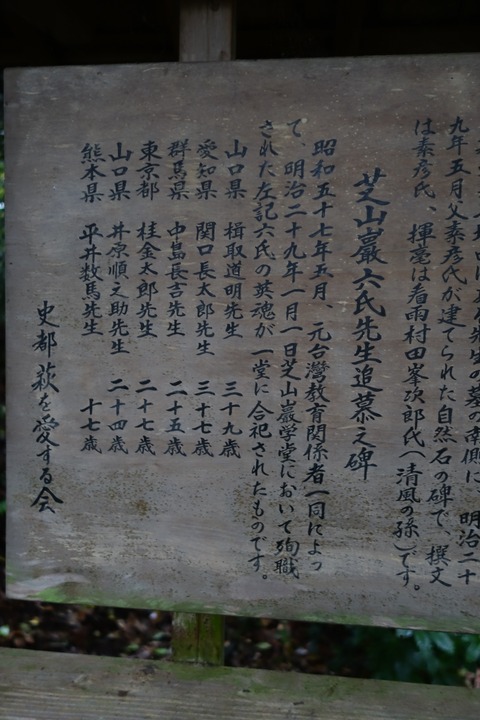 先生の墓の南側に、明治二十
九年五月父素彦氏が建てられた自然石の碑で、撰文
は素彦氏、揮毫は看雨村田峯次郎氏(清風の孫)です。
芝山巖六氏先生追慕之碑
昭和五十七年五月、元台灣教育関係者一同によっ
て、明治二十九年一月一日芝山巖学堂において殉職
された左記六氏の英魂が一堂に合祀されたものです。
山口県 楫取道明先生 三十九歳
愛知県 関口長太郎先生 三十七歳
群馬県 中島長吉先生 二十五歳
東京都 桂金太郎先生 二十七歳
山口県 井原順之助先生 二十四歳
熊本県 平井数馬先生 十七歳
史都萩を愛する会